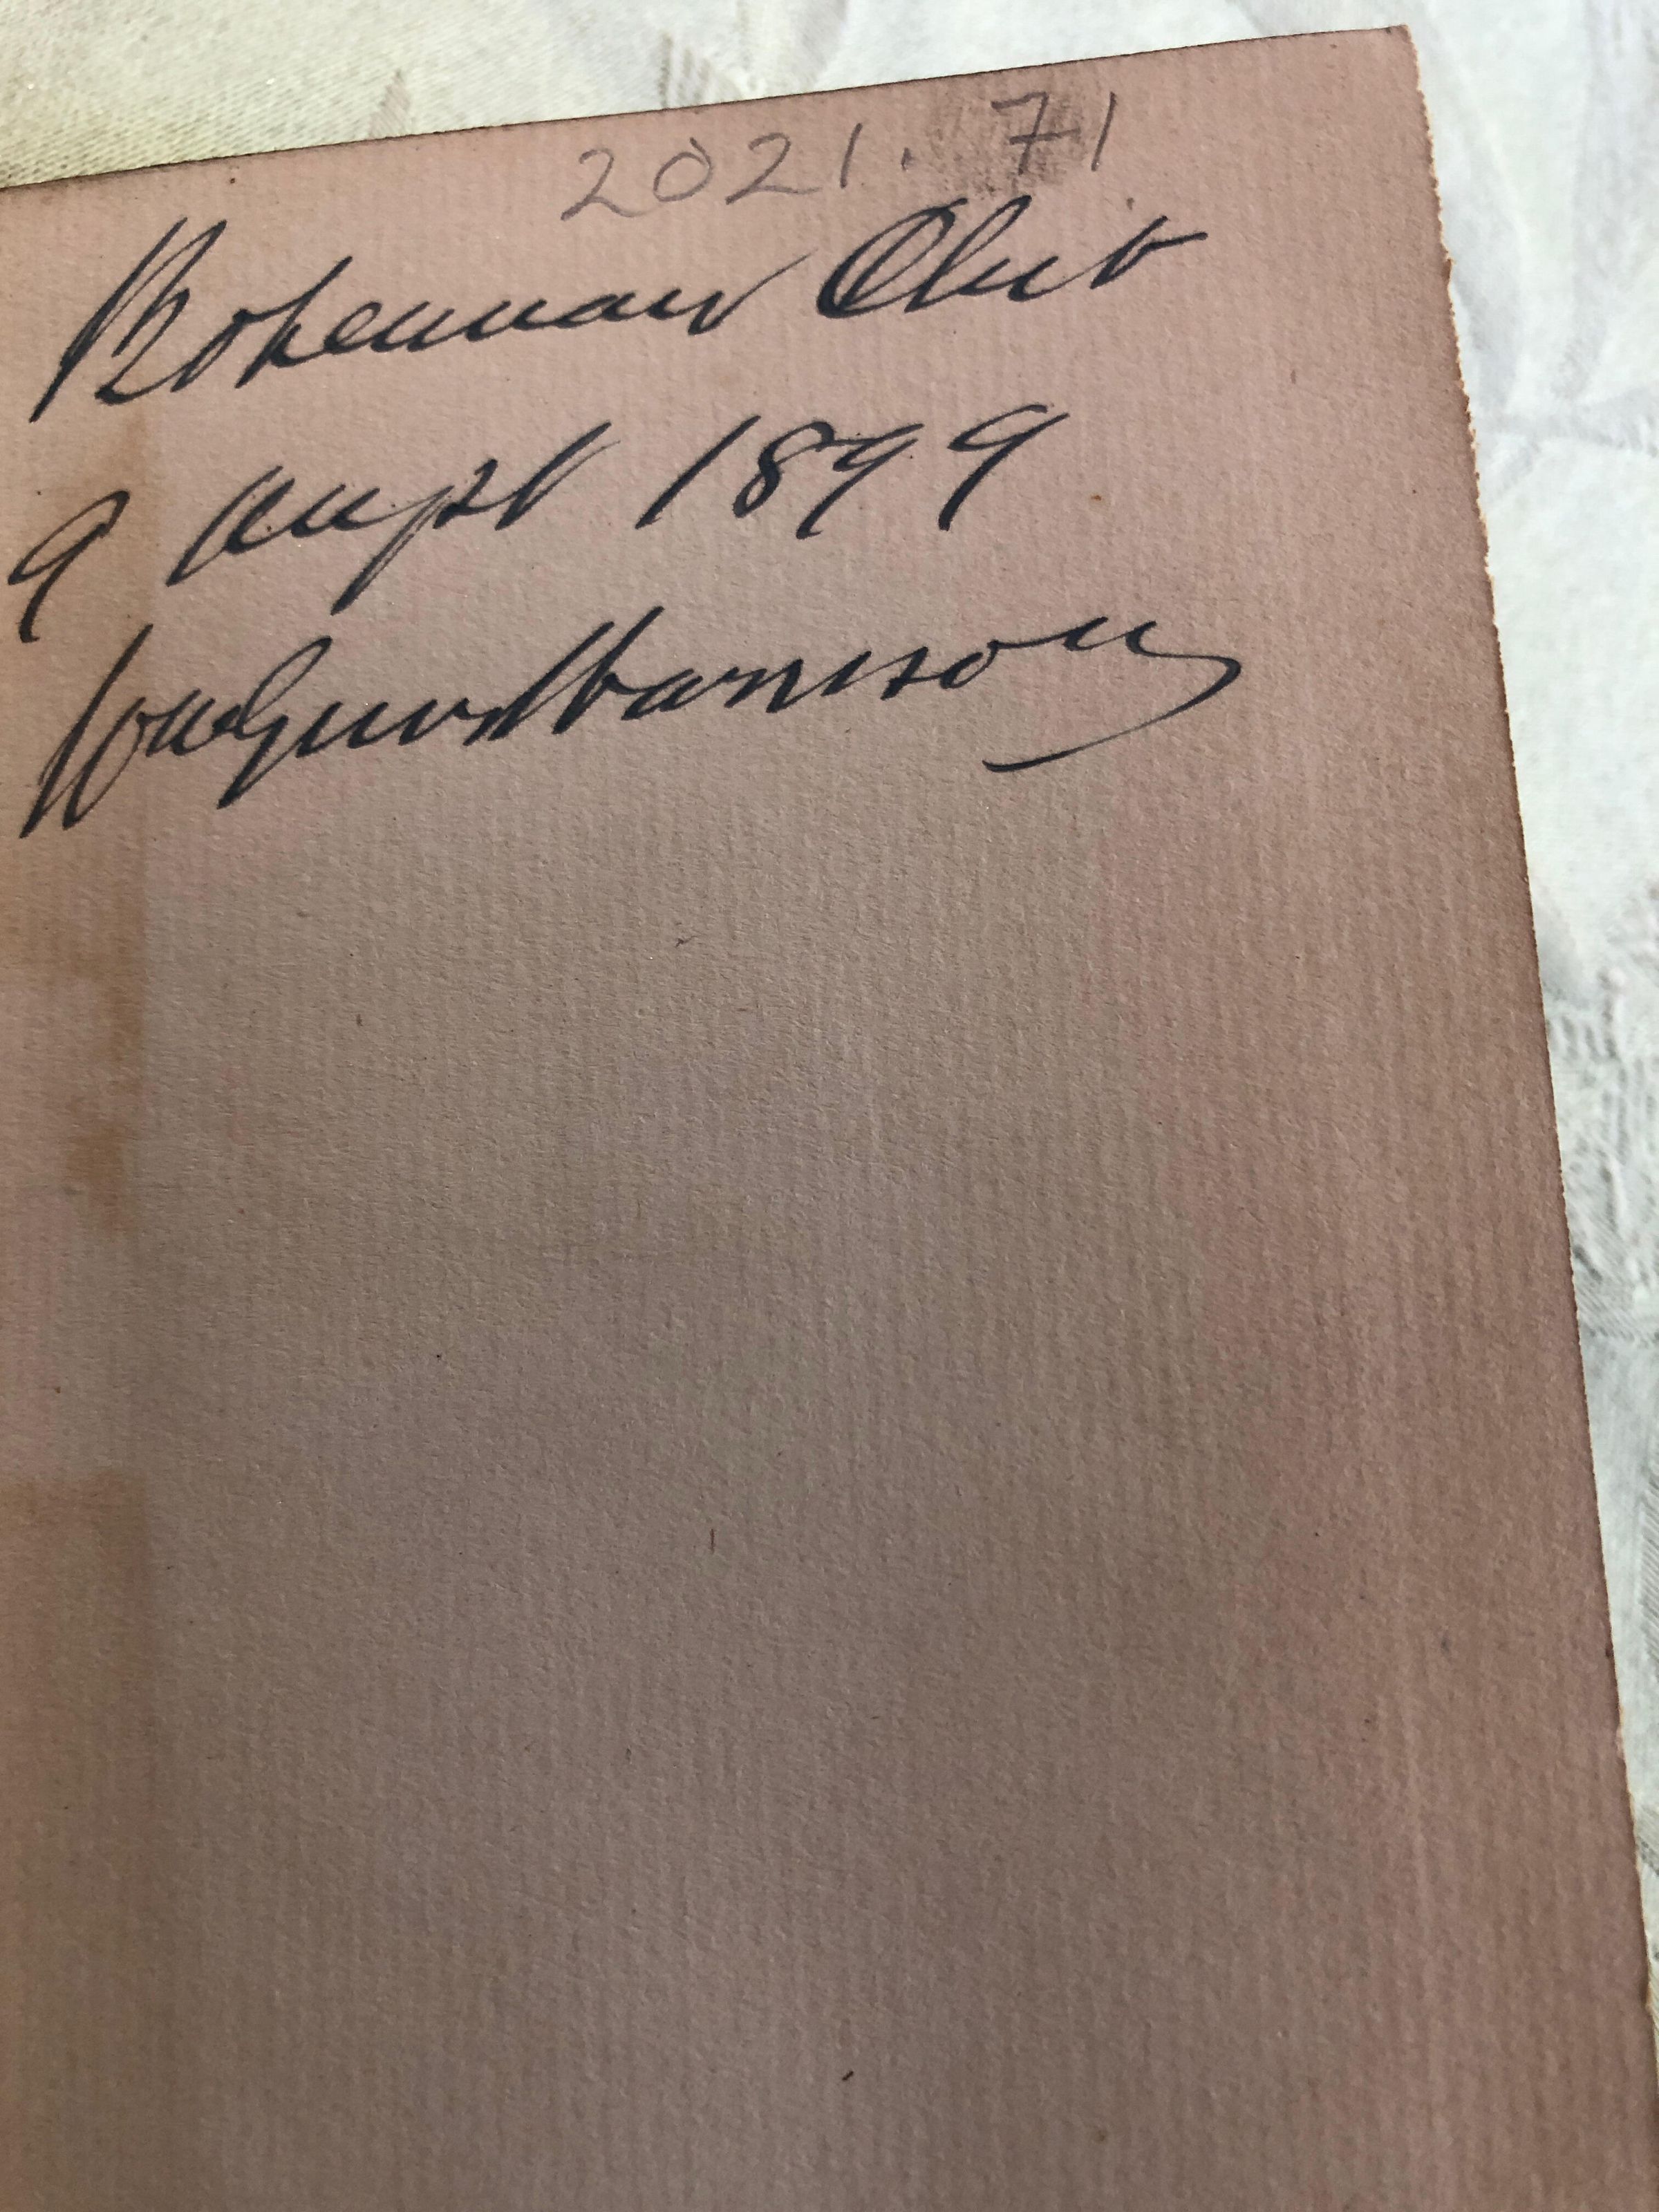 2021. 71
Bohemian Club
9 Augst 1899
Wm Greer Harrison